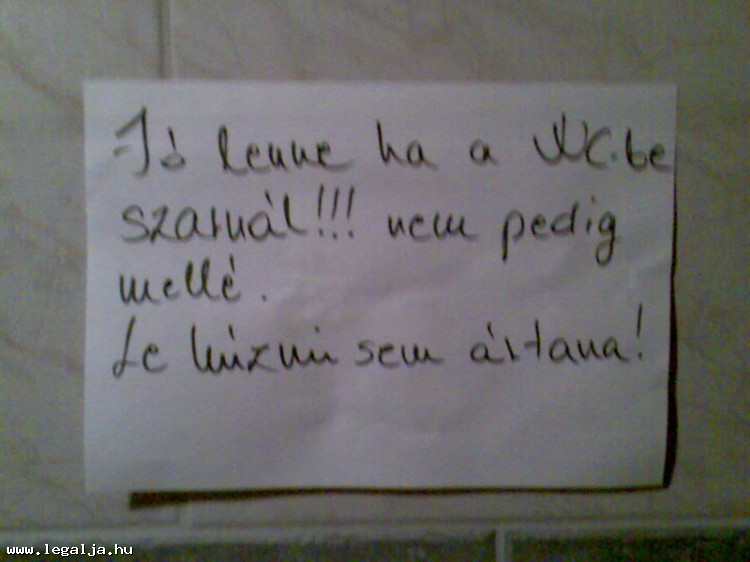 Jó lenne ha a WC.be
szarnál!!! nem pedig
mellé.
Le húzni sem ártana!
www.legalja.hu